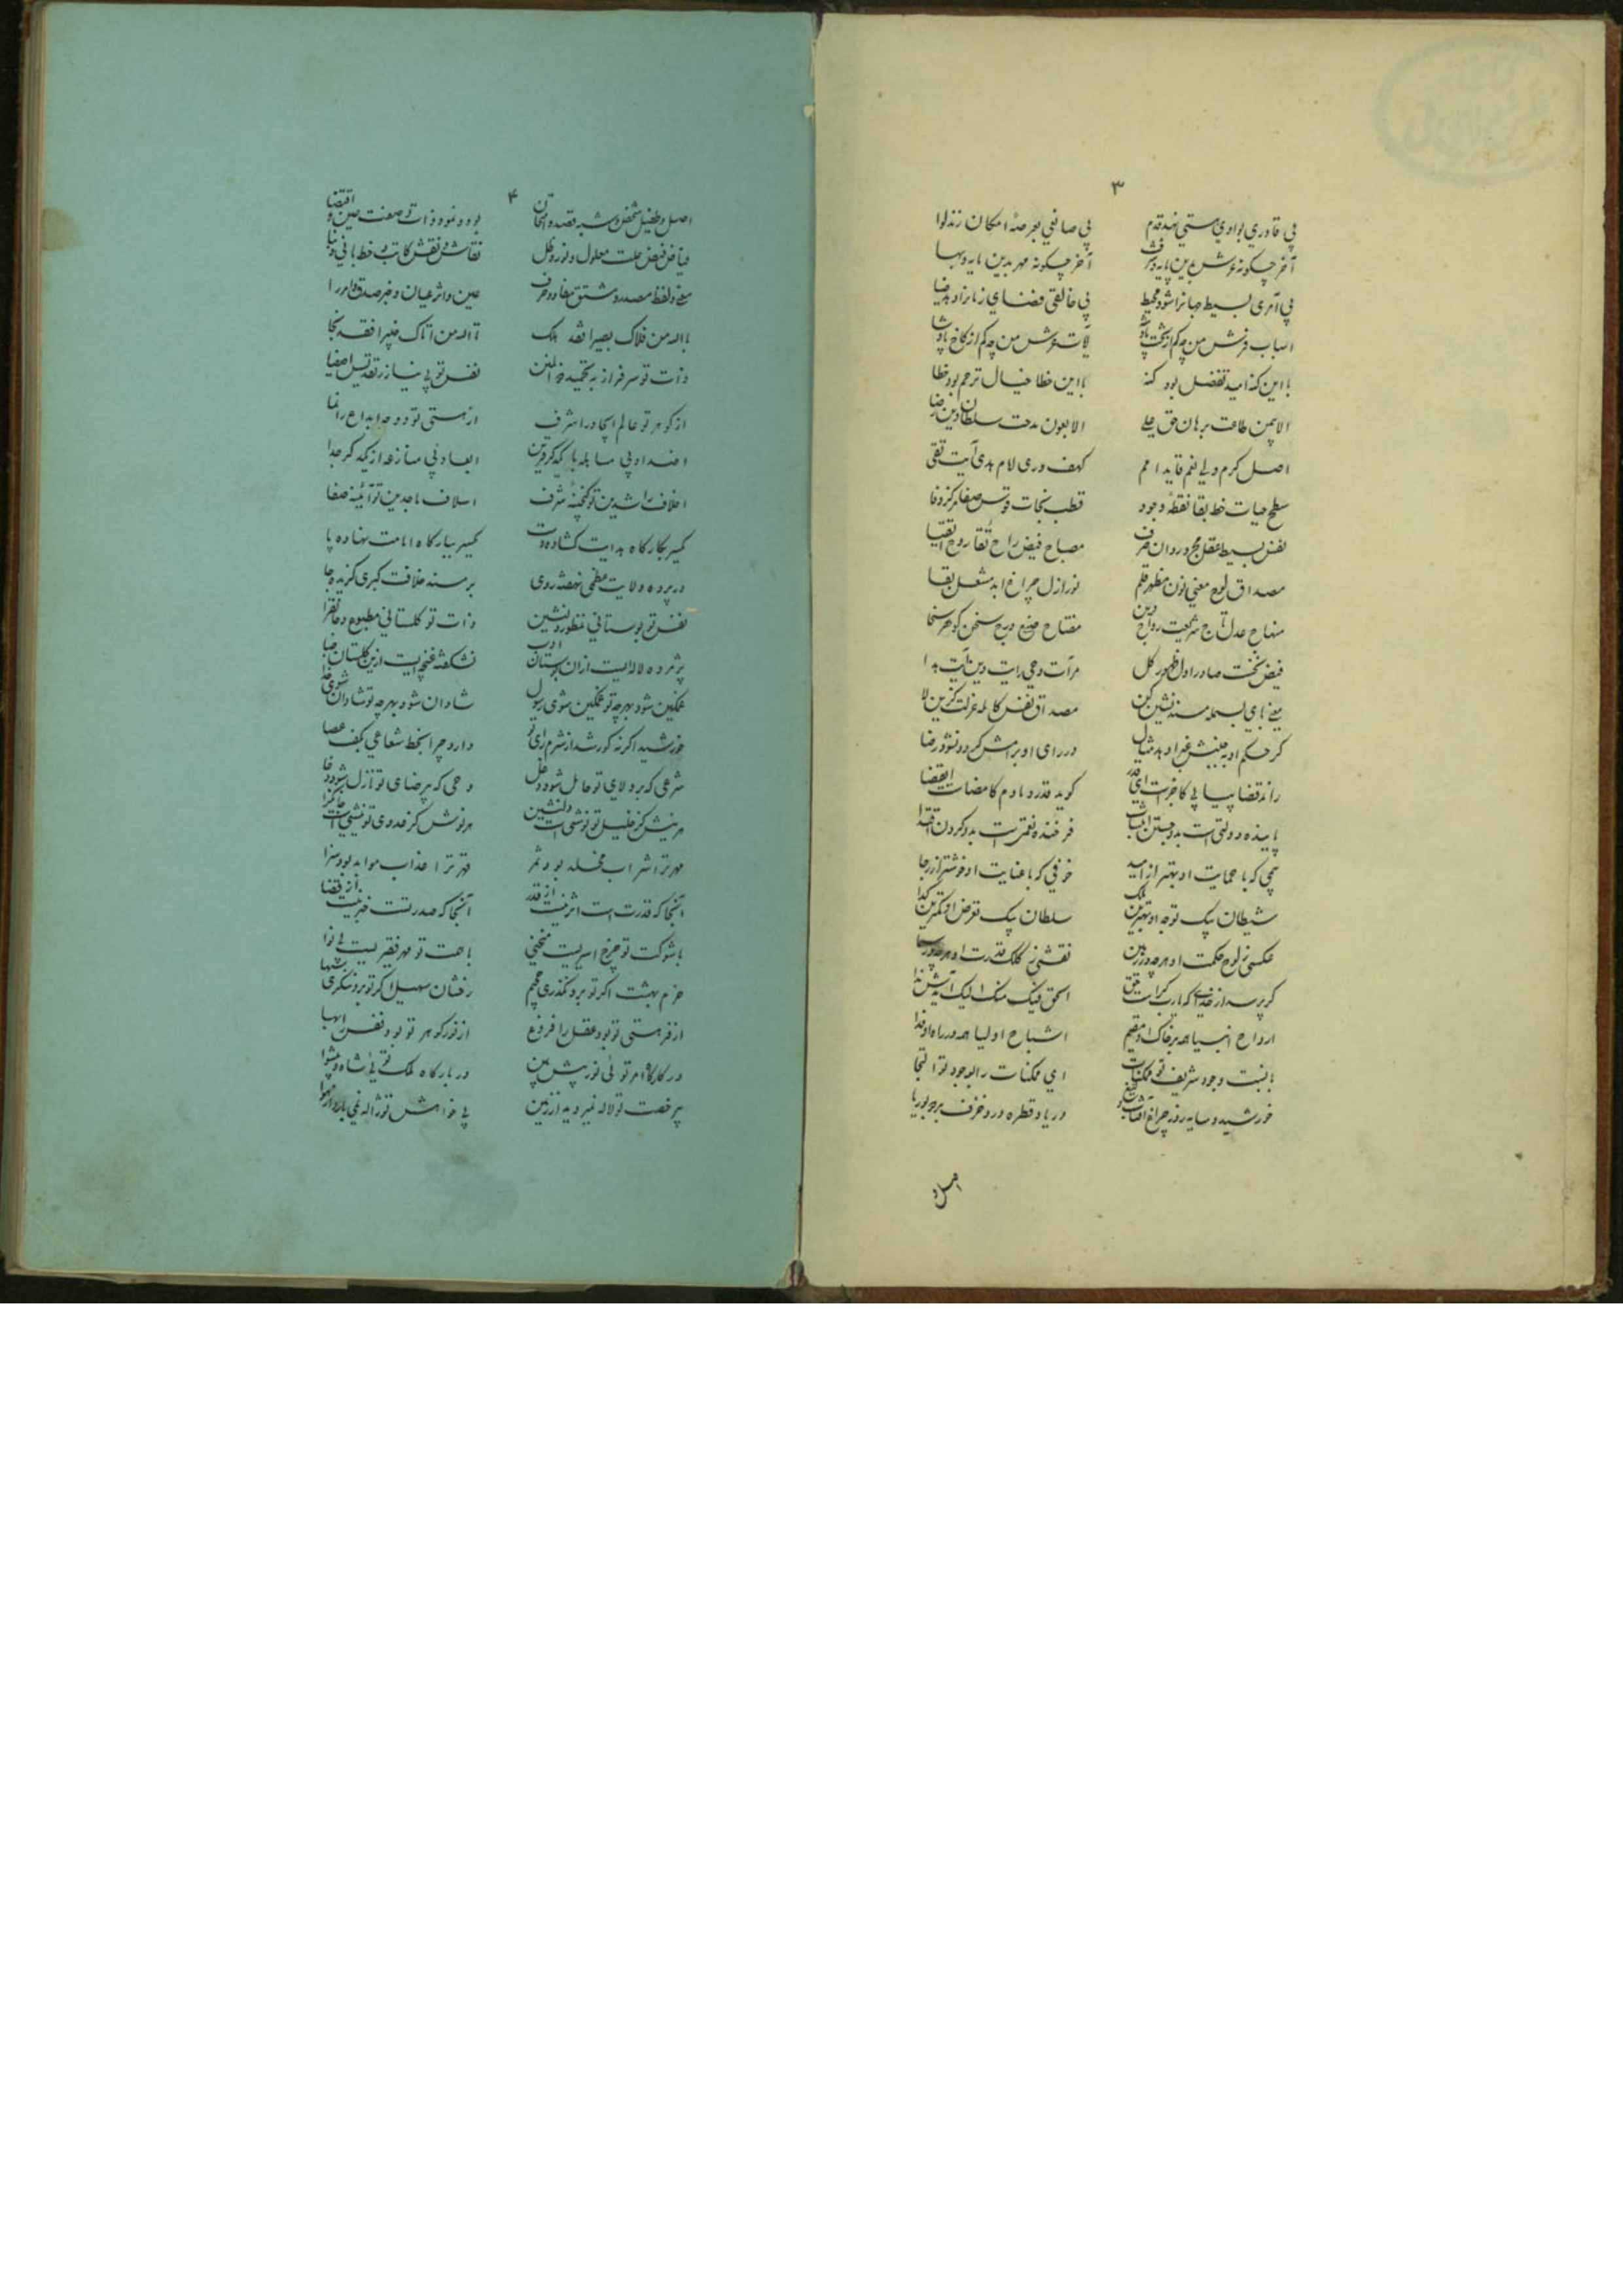 ۳
بی قادری بوادی هستی نهد قدم
بی صانعی بعرصهٔ امکان زند لوا
آخر چگونه عرش بدین پایه و شرف
آخر چگونه مهر بدین مایه و بها
بی آمری بسیط جهانرا شود محیط
بی خالقی فضای زمانرا دهد ضیا
اسباب فرش من چه کم از تخت پادشه
آلات عرش من چه کم از کاخ پادشا
با این گنه امید تفضل بود گنه
با این خطا خیال ترحم بود خطا
الا بیمن طاعت برهان حق علی
الا بعون مدحت سلطان دین رضا
اصل کرم ولی نعم قاید امم
کهف وری امام هدی آیت تقی
سطح حیات خط بقا نقطهٔ وجود
قطب نجات قوس صفا مرکز وفا
نفس بسیط عقل مجرد روان صرف
مصباح فیض راح تقا روح اتقیا
مصداق لوح معنی نون مظهر قلم
نور ازل چراغ ابد مشعل بقا
منهاج عدل تاج شریعت رواج دین
مفتاح صنع درج سخن گوهر سخا
فیض نخست صادر اول ظهور کل
مرآت وحی رایت دین آیت هدا
معنی بای بسمله مسند نشین کن
مصداق نفس کامله عزلت گزین لا
گر حکم او بجنبش غبرا دهد مثال
در رای او برامش گردون شود رضا
راند قضا پیاپی کاخر است ای قدر
گوید قدر دمادم کامضات القضا
پاینده دولتی است بدو جستن انتساب
فرخنده نعمتی است بدو کردن اقتدا
بیمی که با حمایت او بهتر از امید
خوفی که با عنایت او خوشتر از رجا
شیطان بیک توجه او بهترین ملک
سلطان بیک تعرض او کمترین گدا
عکسی ز لوح حکمت او هرچه در زمین
نقشی ز کلک قدرت او هرچه در سما
ارواح انبیا همه بر خاک او مقیم
اشباح اولیا همه در راه او فدا
با نسبت وجود شریف تو ممکنات
ای ممکنات را بوجود تو التجا
خورشید و سایه روز و چراغ آفتاب و شمع
دریا و قطره در و خزف برد و بوریا
اصل و
۴
اصل و طفیل شخص و شبه قصد و امتحان
بود و نمود ذات و صفت عین و اقتضا
فیاض فیض علت معلول و نور و ظل
نقاش نقش کاتب و خط بانی و بنا
معنی و لفظ مصدر و مشتق مفاد و حرف
عین و اثر عیان و خبر صدق و افترا
بالله من قلاک بصیرا فقد هلک
تالله من اتاک خبیرا فقد نجا
ذات تو سرفراز به تحمید
نفس تو بی نیاز ز تقدیس اصفیا
از گوهر تو عالم ایجاد را شرف
از هستی تو دوحهٔ ابداع را نما
اضداد بی مسابله با یکدگر قرین
ابعاد بی منازعه از یکدگر جدا
اخلاف راشدین تو گنجینهٔ شرف
اسلاف ماجدین تو آئینهٔ صفا
گیسر بکارگاه هدایت گشاده دست
گیسر ببارگاه امامت نهاده پا
در پرده ولایت عظمی نهفته روی
بر مسند خلافت کبری گزیده جا
نفس تو بوستانی منظور و دلنشین
ذات تو گلستانی مطبوع و جانفزا
پژمرده لاله ایست از آن بوستان ادب
نشکفته غنچه ایست ازین گلستان حیا
غمگین شود بهرچه تو غمگین شوی رسول
شادان شود بهرچه تو شادان شوی خدا
خورشید اگر نه کور شد از شرم رای تو
دارد چرا بخط شعاعی بکف عصا
شرعی که بر ولای تو حامل شود دغل
وحی که بر رضای تو نازل شود دغا
هر نیش کز خلیل تو نوشی است دلنشین
هر نوش کز عدوی تو نیشی است جانگزا
مهر ترا شراب مخلد بود ثمر
قهر ترا عذاب موبد بود سزا
آنجا که قدرت است اثر نیست از قدر
آنجا که صدر تست خبر نیست از قضا
با شوکت تو چرخ اسیریست منحنی
با همت تو مهر فقیریست بی نوا
خرم بهشت اگر تو برو نگذری جحیم
رخشان سهیل اگر تو برو ننگری سها
از فر هستی تو بود عقل را فروغ
از نور گوهر تو بود نفس را بها
در کارگاه امر تو ئی نور پیش بین
در بارگاه ملک توئی شاه و پیشوا
بی رخصت تو لاله نمیروید از زمین
بی خواهش تو ژاله نمی بارد از هوا